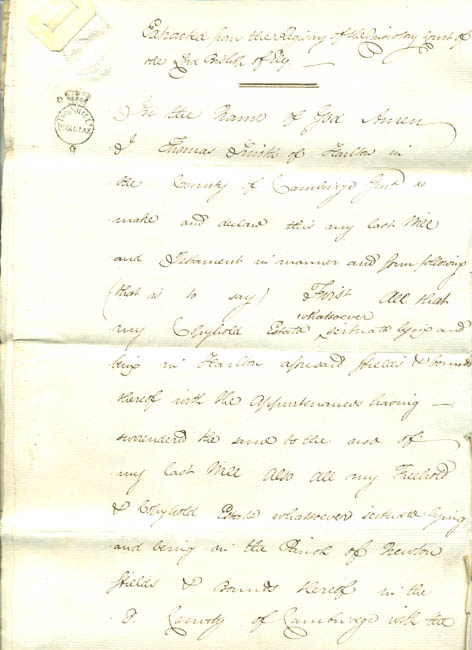 Extracted from the Registry of the Consistory Court of
the Lord Bishop of Ely —
In the Name of God Amen
I Thomas Smith of Harlton in
the County of Cambridge Gent do
make and declare this my last Will
and Testament in manner and form following
(that is to say) First All that
whatsoever
my Copyhold Estate scituate lying and
being in Harlton aforesaid ffields & bounds
thereof with the Appurtenances having —
surrendered the same to the use of
my last Will Also All my Freehold
& Copyhold Estate whatsoever scituate lying
and being in the Parish of Newton
ffields & Bounds thereof in the
County of Cambridge with the